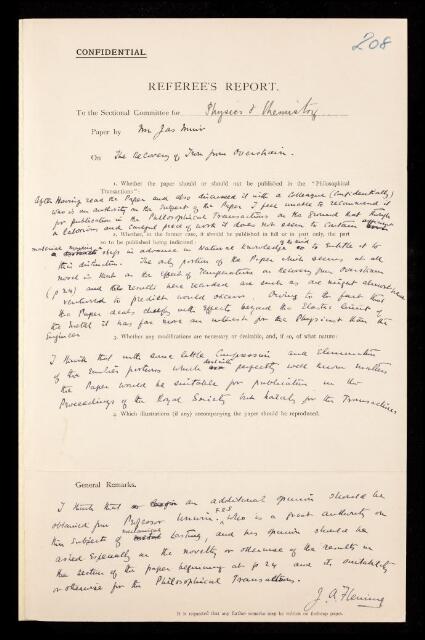 208
CONFIDENTIAL.
REFEREE'S REPORT.
To the Sectional Committee for Physics & Chemistry
Paper by Mr Jas Muir
On The Recovery of Iron from Overstrain.
1. Whether the paper should or should not be published in the "Philosophical
Transactions":
After Having read the Paper and also discussed it with a Colleague (Confidentially)
who is an authority on the Subject of the Paper I feel unable to recommend it
for publication in the Philosophical Transactions on the Ground that though
a laborious and careful piece of work it does not seem to contain
2. Whether, in the former case, it should be published in full or in part only, the part
so to be published being indicated:
material steps in advance in Natural Knowledge to entitle it to
this distinction. The only portion of the Paper which seems at all
novel is that on the effect of Temperature on Recovery from Overstrain
(p 24) and the results here recorded are such as one might almost have
ventured to predict would occur. Owing to the fact that
the Paper deals chiefly with effects beyond the Elastic limit of
the metal it has far more an interest for the Physicist than the
Engineer
3. Whether any modifications are necessary or desirable, and, if so, of what nature:
I think that with some little Compression and Elimination
of the earlier portions which describe perfectly well known matters
the Paper would be suitable for publication in the
Proceedings of the Royal Society but hardly for the Transactions
4. Which illustrations (if any) accompanying the paper should be reproduced.
General Remarks.
I think that an additional opinion should be
obtained from Professor Unwin FRS who is a great authority on
this subject of mechanical testing, and his opinion should be
asked Especially on the novelty or otherwise of the results in
the section of the paper beginning at p 24 and its suitability
or otherwise for the Philosophical Transactions.
J. A. Fleming
It is requested that any further remarks may be written on foolscap paper.